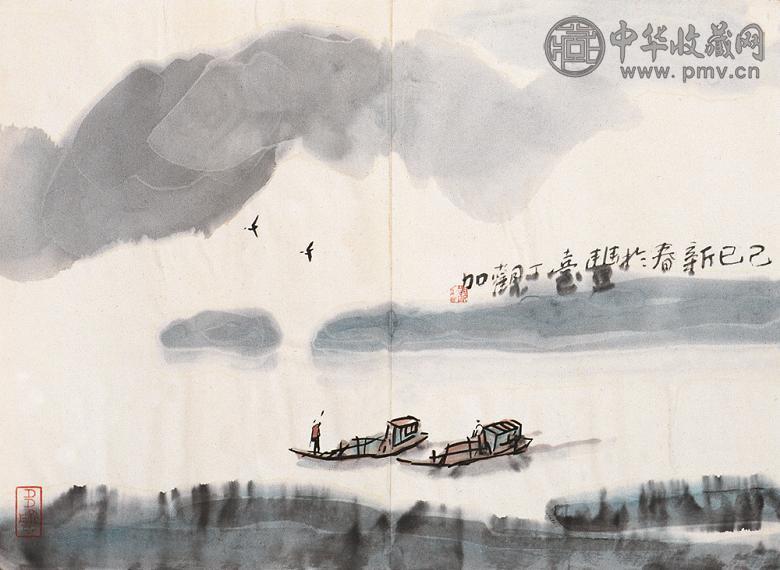 中华收藏网
www.pmv.cn
己巳新春於豐臺丁觀加